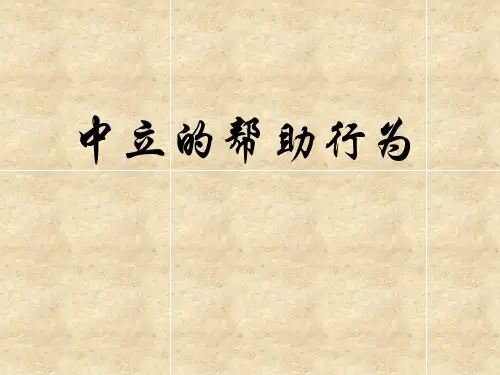 中立的帮助行为